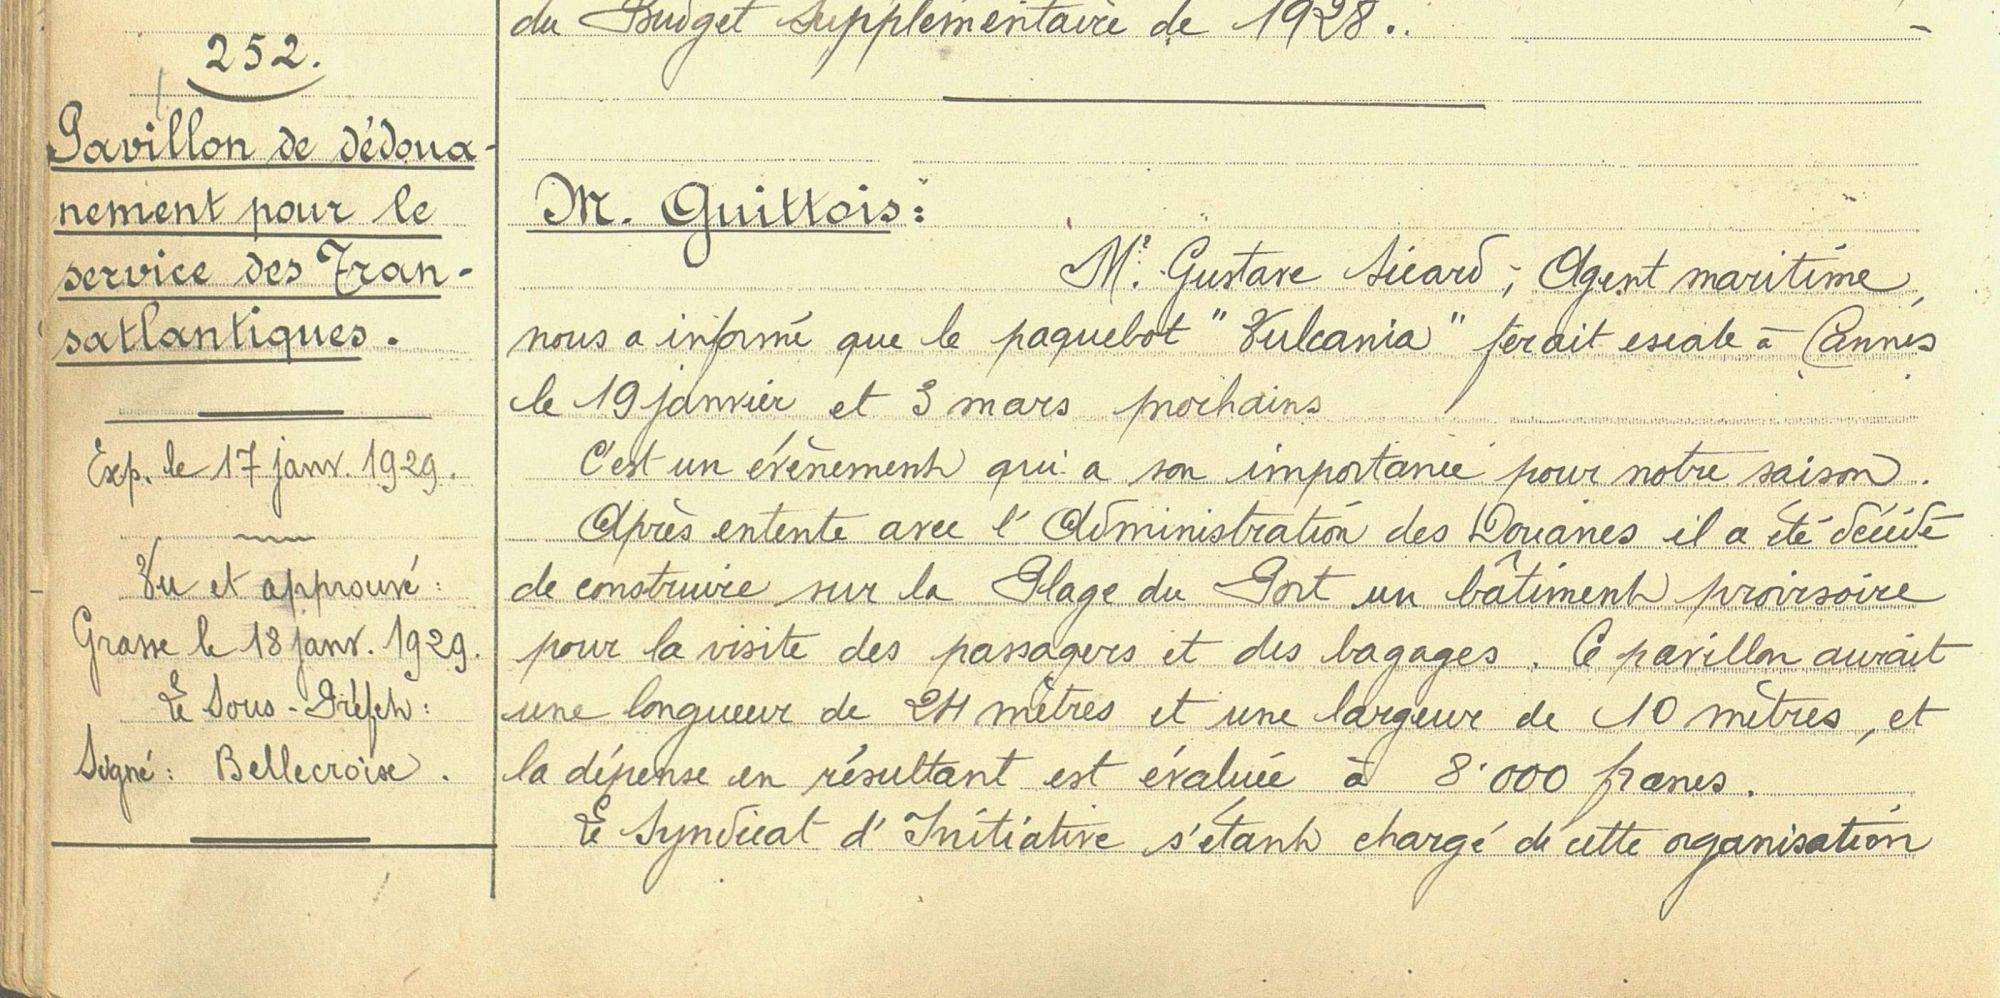 du Budget supplémentaire de 1928..
252.
Pavillon de dédoua-
nement pour le
service des Tran-
satlantiques.
Exp. le 17 janv. 1929.
Vu et approuvé:
Grasse le 18 janv. 1929.
Le Sous-Préfet:
Signé: Bellecroise.
M. Guittois:
Mr. Gustave Sicard, Agent maritime,
nous a informé que le paquebot "Vulcania" ferait escale à Cannes
le 19 janvier et 3 mars prochains
C'est un évènement qui a son importance pour notre saison.
Après entente avec l'Administration des Douanes il a été décidé
de construire sur la Plage du Port un bâtiment provisoire
pour la visite des passagers et des bagages. Ce pavillon aurait
une longueur de 24 mètres et une largeur de 10 mètres, et
la dépense en résultant est évaluée à 8.000 francs.
Le Syndicat d'Initiative s'étant chargé de cette organisation